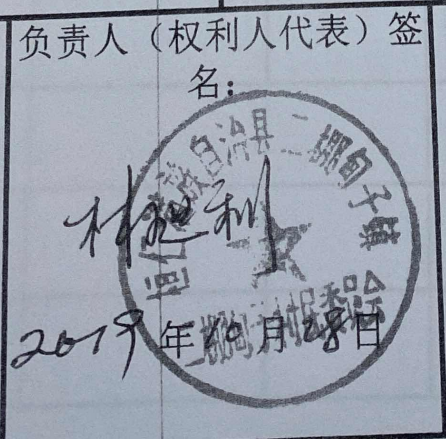 负责人（权利人代表）签
名：
桓仁满族自治县二棚甸子镇
二棚甸子村村民委员会
2019年10月28日